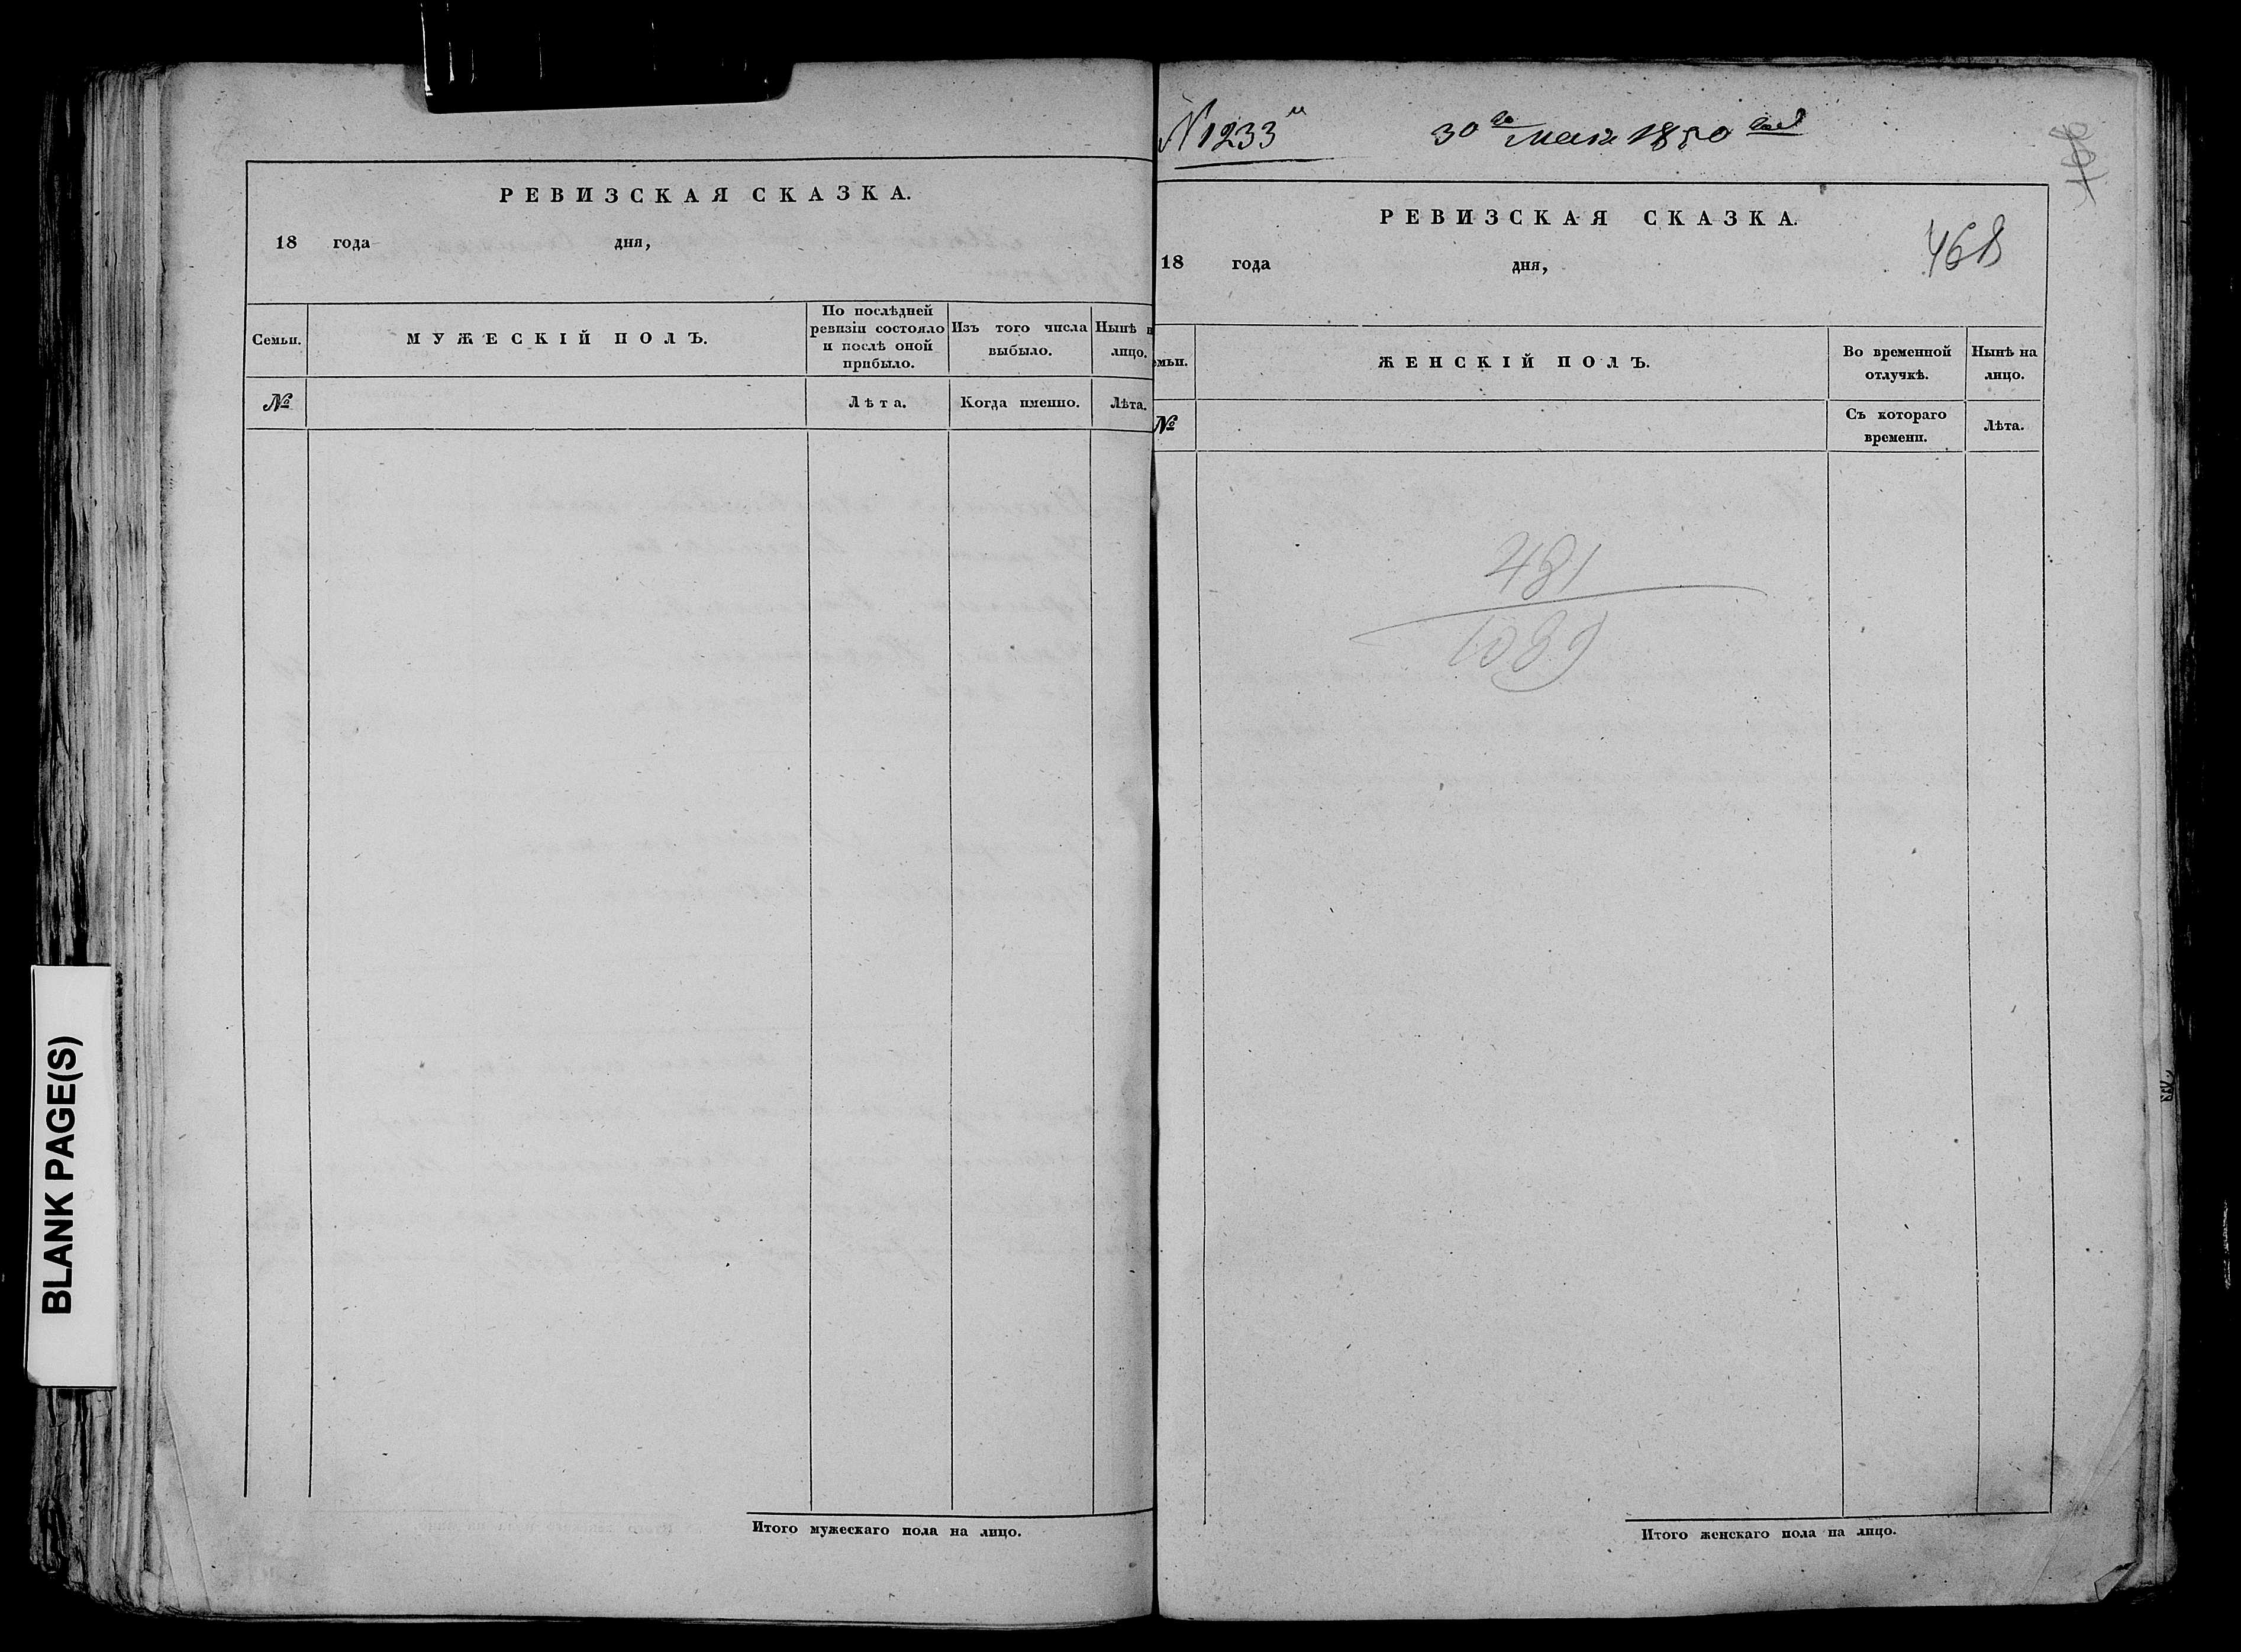 РЕВИЗСКАЯ СКАЗКА.
18 года дня,
Семьи.
МУЖЕСКІЙ ПОЛЪ.
По послѣдней
ревизіи состояло
и послѣ оной
прибыло.
Изъ того числа
выбыло.
Нынѣ н
лицо.
№
Лѣта.
Когда именно.
Лѣта.
Итого мужескаго пола на лицо.
BLANK PAGE(S)
№ 1233
30го мая 1850
РЕВИЗСКАЯ СКАЗКА.
468
18 года дня,
емьи.
ЖЕНСКІЙ ПОЛЪ.
Во временной
отлучкѣ.
Нынѣ на
лицо.
№
Съ котораго
времени.
Лѣта.
481
1089
Итого женскаго пола на лицо.